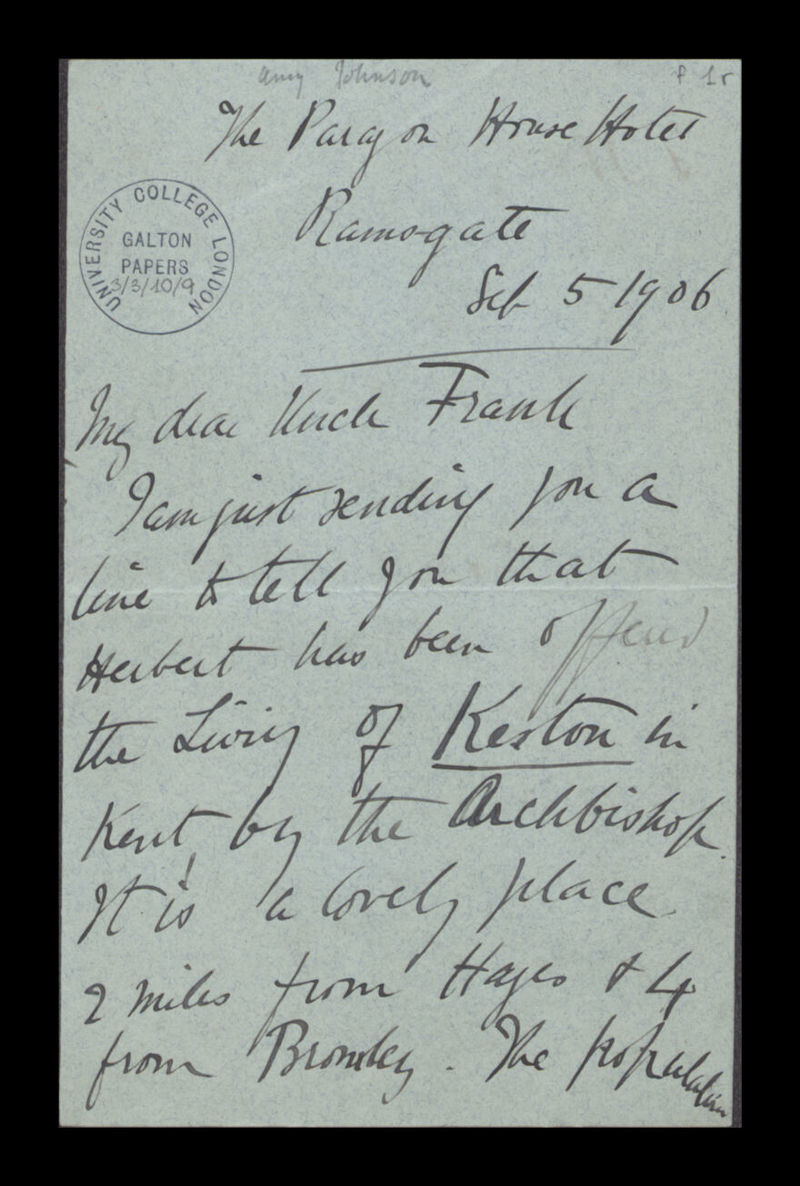 Amy Johnson
f 1r
The Paragon House Hotel
Ramsgate
Sep 5 1906
UNIVERSITY COLLEGE LONDON
GALTON
PAPERS
3/3/10/9
My dear Uncle Frank
I am just sending you a
line to tell you that
Herbert has been offered
the Living of Keston in
Kent, by the Archbishop.
It is a lovely place
2 miles from Hayes & 4
from Bromley. The population